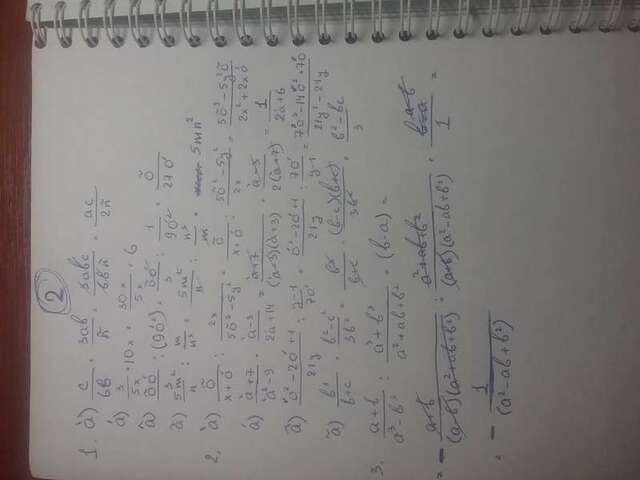 2
1. à) c/6b · 3ab/ñ = 3abc/6bñ = ac/2ñ
á) 3/5x · 10x = 30x/5x = 6
â) õó/3 : (9ó²) = õó/3 · 1/9ó² = õ/27ó
ã) 5m²/n : m/n³ = 5m²/n · n³/m = 5mn²
2. à) õ/x+ó : 2x/5õ²-5y² = õ/x+ó · 5õ²-5y²/2x = 5õ³-5y²õ/2x²+2xó
á) à+7/à²-9 · à-3/2à+14 = à+7/(à-3)(à+3) · à-3/2(à+7) = 1/2à+6
â) ó²-2ó+1/21y : y-1/7ó = ó²-2ó+1/21y · 7ó/y-1 = 7ó³-14ó²+7ó/21y²-21y
ã) b³/b+c · b²-c²/3b² = b³/b+c · (b-c)(b+c)/3b² = b²-bc/3
3. a+b/a³-b³ : a³+b³/a²+ab+b² · (b-a) =
= - a+b/(a-b)(a²+ab+b²) · a²+ab+b²/(a+b)(a²-ab+b²) · a-b/1 =
= - 1/(a²-ab+b²)